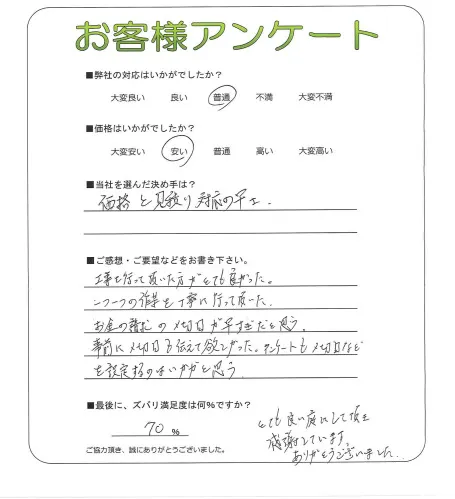 お客様アンケート
■弊社の対応はいかがでしたか?
大変良い 良い 普通 不満 大変不満
■価格はいかがでしたか?
大変安い 安い 普通 高い 大変高い
■当社を選んだ決め手は?
価格と見積り対応の早さ.
■ご感想・ご要望などをお書き下さい。
工事を行って頂いた方がとても良かった。
一つ一つの作業を丁寧に行って頂いた.
お金の の〆切日が早すぎだと思う.
事前に〆切日も伝えて欲しかった。アンケートも〆切日など
を設定するのはいかがと思う.
■最後に、ズバリ満足度は何%ですか?
70 %
とても良い庭にして頂き
感謝しています.
ありがとうございました.
ご協力頂き、誠にありがとうございました。